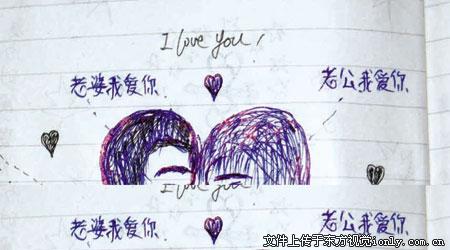 I love you!
老婆我爱你 老公我爱你
I love you!
老婆我爱你 老公我爱你
文件上传于东方视觉ionly.com.cn